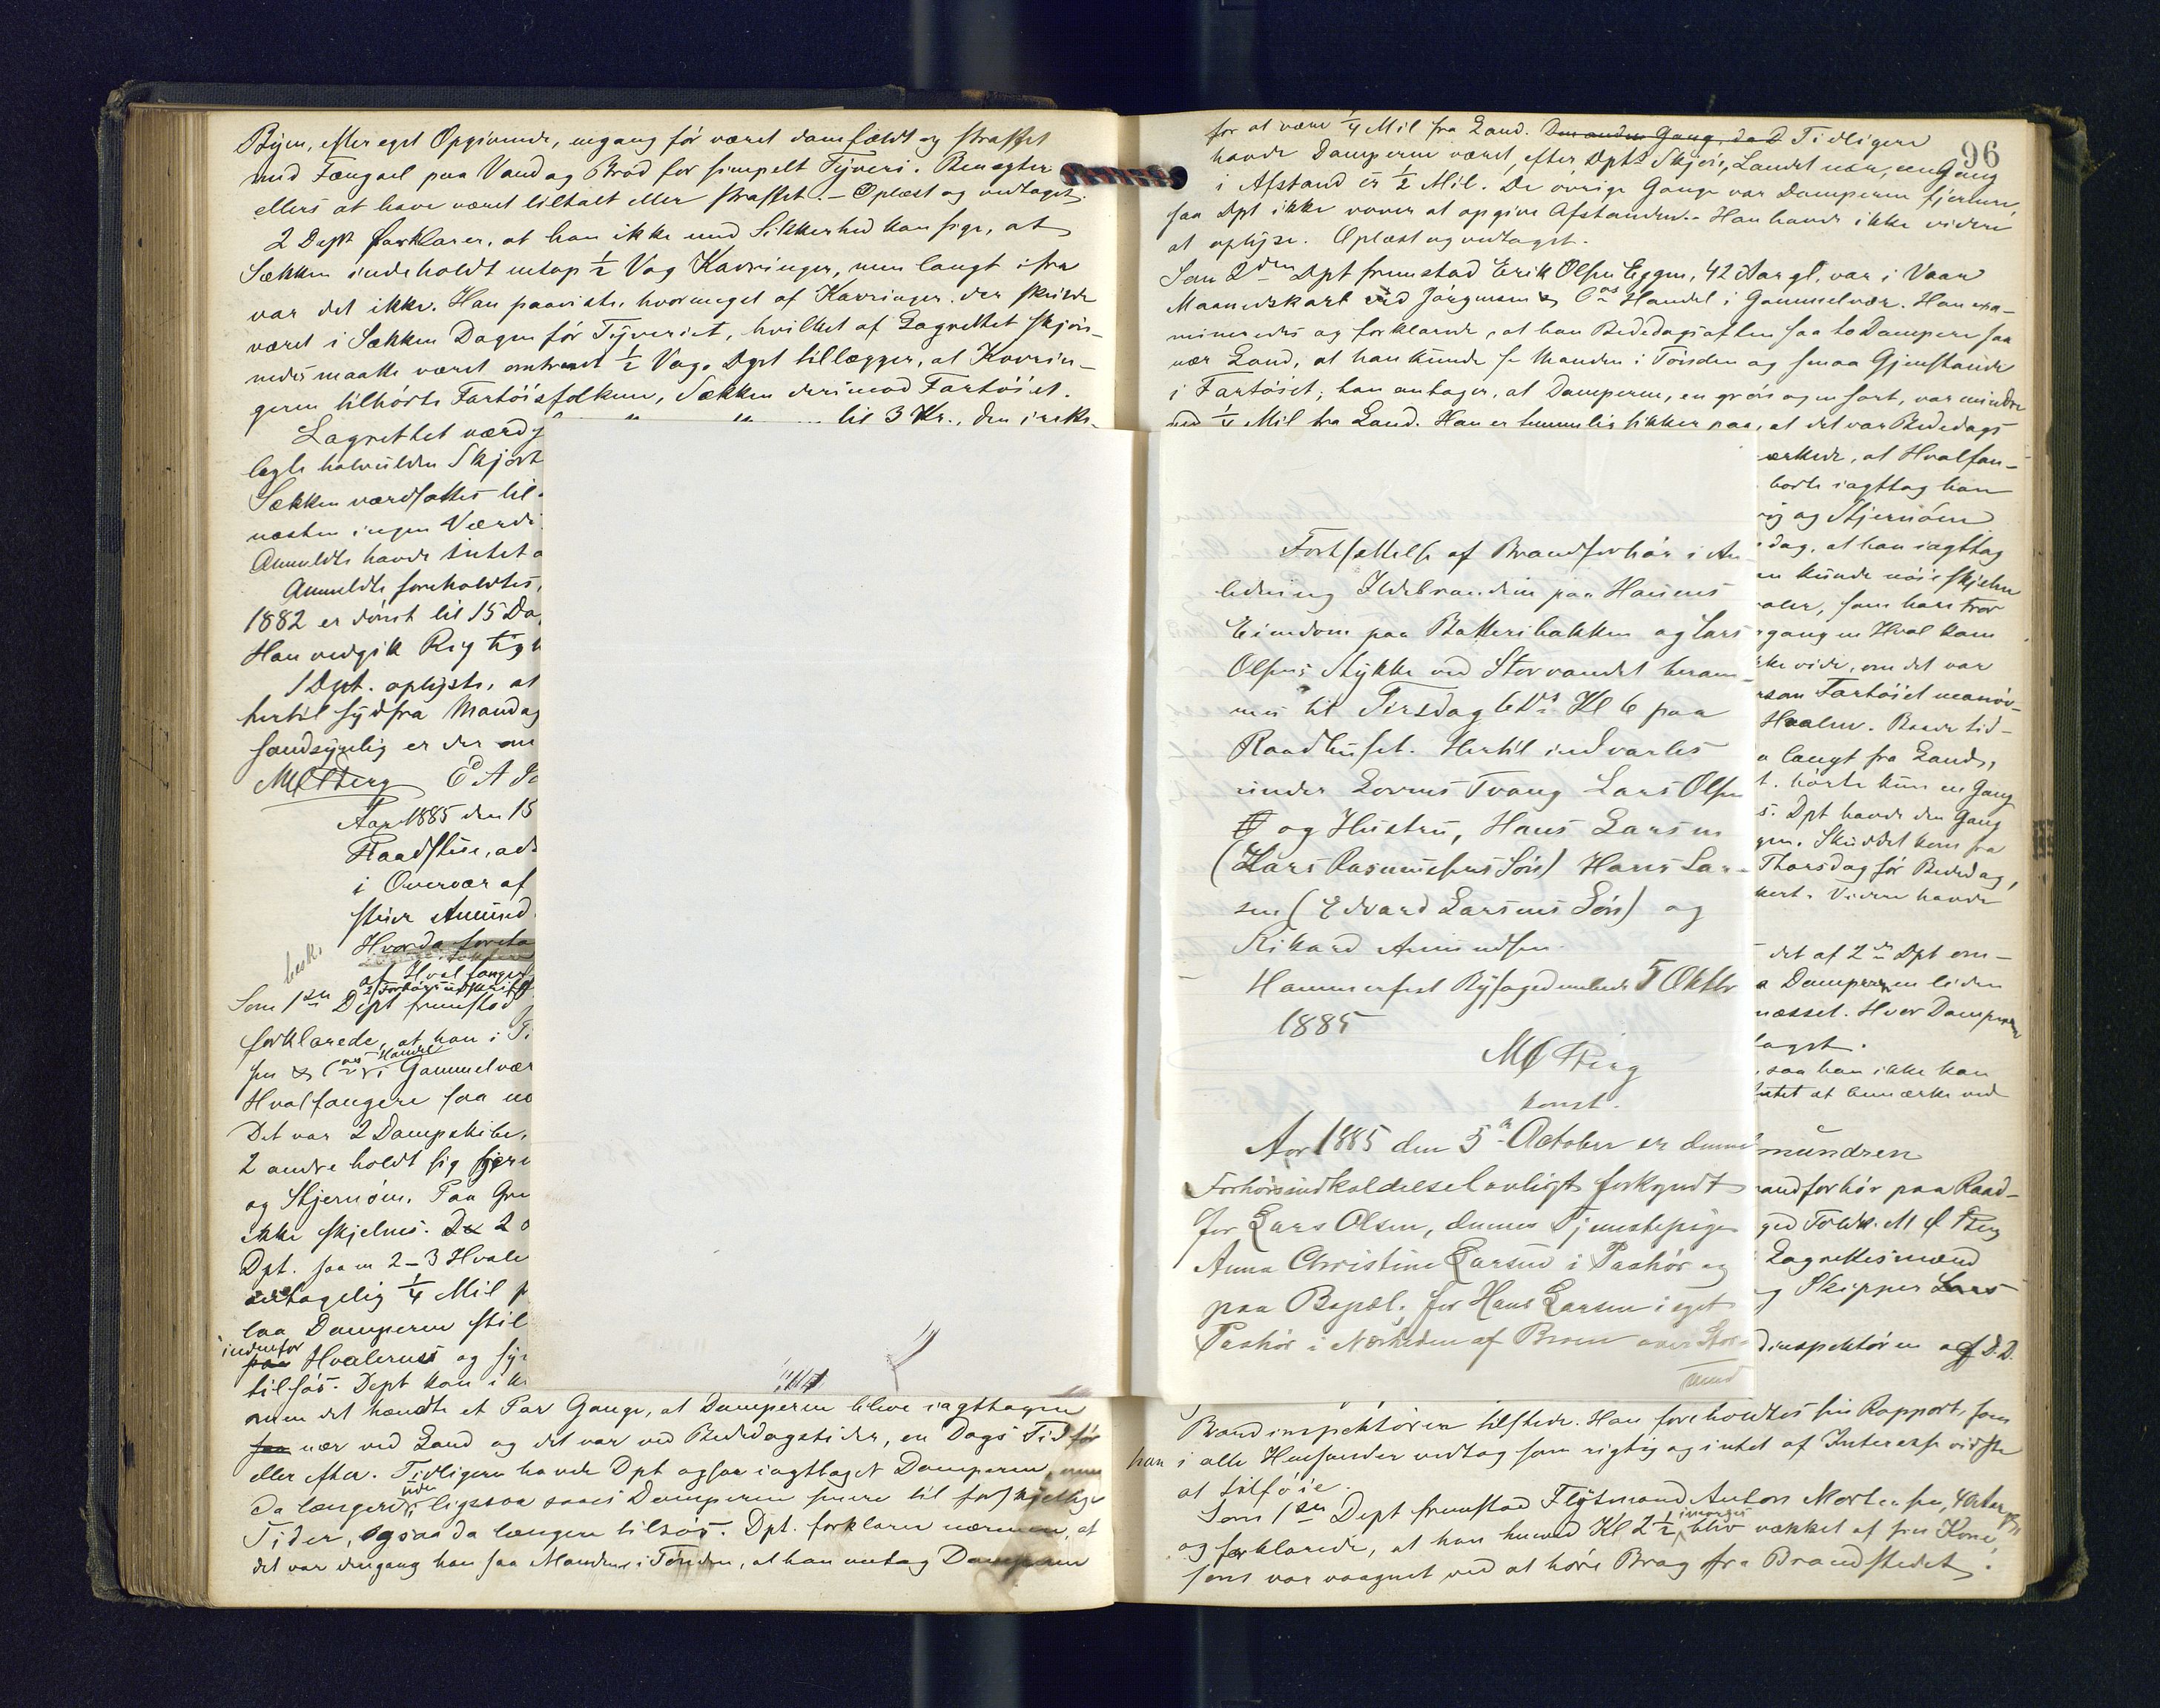 Byen, efter eget Opgivende, engang før været domfældt og straffet
med Fængsel paa Vand og Brød for simpelt Tyveri. Benegter
ellers at have været tiltalt eller straffet. – Oplæst og vedtaget.
2 Dept forklarer, at han ikke med Sikkerhed kan sige, at
Sækken indeholdt netop ½ Vog Kavringer, men langt ifra
var det ikke. Han paaviste, hvormeget af Kavringer der skulde
været i Sækken Dagen før Tyveriet, hvilket af Lagrettet skjøn-
nedes maatte været omtrent ½ Vog. Dpt tillægger, at Kavrin-
gerne tilhørte Fartøisfolkene, Sækken derimod Fartøiet.
Lagrettet værd
til 3 Kr., den
lagte halvulden Skjort
Sækken værdsattes til
næsten ingen Værdi.
Anmeldte havde intet
Anmeldte foreholdtes,
1882 er dømt til 15 Da
Han vedgik Rigtigh
1 Dpt. oplyste, at
hertil sydfra Mandag
sandsynlig er der
MØBerg
Aar 1885 den 15
Raadstue, ad
i Overvær af
Amund
beskr
Hvorda foreto
af Hvalfanger
Som 1ste Dept fremstod
forklarede, at han i
sen & Co's Handel i Gammelvær
Hvalfangere saa
Det var 2 Dampskibe,
2 andre holdt sig fjern
og Stjernøen. Paa
ikke skjelnes. De 2
Dpt. saa en 2–3 Hvale
antagelig ¼ Mil
laa Damperen stil
indenfor
paa Hvalernes og
tilsøs. Dept kan ik
men det hændte et Par Gange, at Damperen bleve iagttagen
saa nær ved Land og det var ved Bededagstider, en Dags Tid før
eller efter. Tidligere havde Dpt ogsaa iagttaget Damperen, men
da længere ude, ligesaa saaes Damperen senere til forskjellige
Tider, ogsaa da længere tilsøs. Dpt. forklarer nærmere, at
det var dengang han saa Manden i Tønden, at han antog Damperen
96
for at være ¼ Mil fra Land. Den anden Gang, da D Tidligere
havde Damperen været, efter Dpts Skjøn, Landet nær, en Gang
i Afstand ½ Mil. De øvrige Gange var Damperen fjernere,
saa Dpt ikke vover at opgive Afstanden. – Han havde ikke videre
at oplyse. Oplæst og vedtaget.
Som 2den Dpt fremstod Erik Olsen Eggen, 42 Aar gl, var i Vaar
Maanedskarl ved Jørgensen & Co's Handel i Gammelvær. Han exa-
mineredes og forklarede, at han Bededagsaften saa to Dampere saa
nær Land, at han kunde se Manden i Tønden og smaa Gjenstande
i Fartøiet; han antager, at Damperne, en graa og en sort, var mindre
end ¼ Mil fra Land. Han er temmelig sikker paa, at det var Bededags
mærkede, at Hvalfan-
borte iagttog han
og Stjernøen
dag, at han iagttog
kunde nøie skjelne
som han tror
gang en Hval kom
ikke vide, om det var
Fartøiet manøv-
Hvalen. Baade tid-
langt fra Land,
hørte kun en Gang
Dpt havde den Gang
Skuddet kom fra
Thorsdag før Bededag,
Videre havde
det af 2den Dpt om-
Damperen liden
næsset. Hver Damper
taget.
saa han ikke kan
intet at bemærke ved
mundsen
Brandforhør paa Raad-
MØBerg
Lagrettesmænd
og Skipper Lars
Brandinspektøren og D.D.
Brandinspektøren tilstede. Han foreholdtes sin Rapport, som
han i alle Henseender vedtog som rigtig og intet af Interesse vidste
at tilføie.
Som 1ste Dept fremstod Flytmand Anton Mortensen, 40 Aar gl
og forklarede, at han henved Kl 2½ imorges blev vækket af sin Kone,
som var vaagnet ved at høre Brag fra Brandstedet.
Fortsættelse af Brandforhør i An
ledning Ildebranden paa Hauans
Eiendom paa Batteribakken og Lars
Olsens Stykke ved Storvandet beram-
mes til Tirsdag 6ds Kl 6 paa
Raadhuset. Hertil indvarles
under Lovens Tvang Lars Olsen
og Hustru, Hans Larsen
(Lars Rasmussens Søn) Hans Lar-
sen (Edvard Larsens Søn) og
Rikard Amundsen.
Hammerfest Byfogedembede 5 Oktbr
1885
MØBerg
konst.
Aar 1885 den 5te October er denne
Forhørsindkaldelse lovligt forkyndt
for Lars Olsen, dennes Tjenestepige
Anna Christine Larsen i Paahør og
paa Bopæl, for Hans Larsen i eget
Paahør i Nærheden af Broen over Stor-